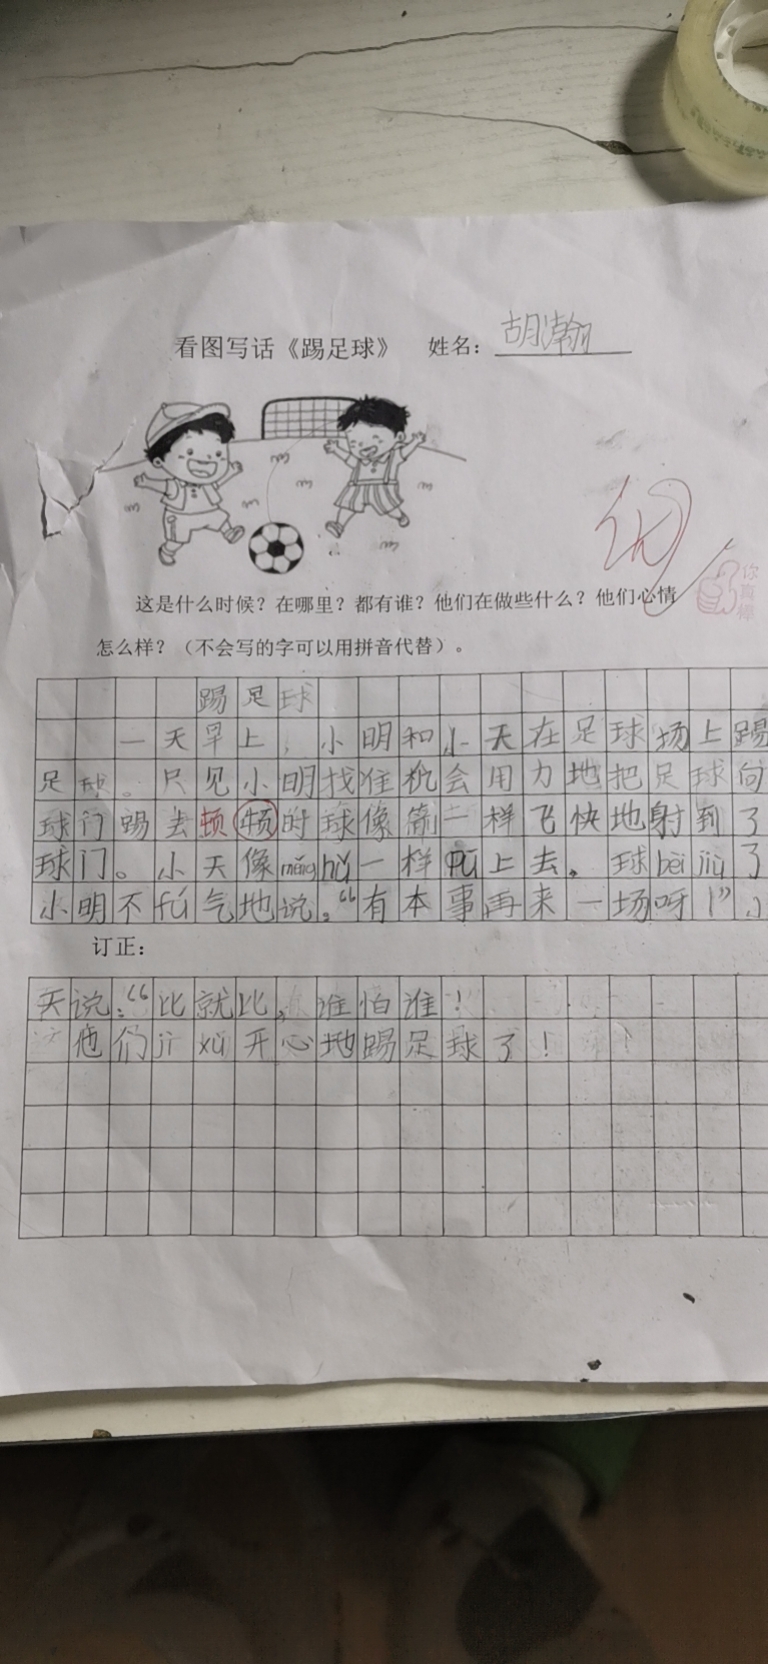 看图写话《踢足球》 姓名：胡瀚
你真棒
这是什么时候？在哪里？都有谁？他们在做些什么？他们心情
怎么样？（不会写的字可以用拼音代替）。
踢足球
一天早上，小明和小天在足球场上踢
足球。只见小明找准机会用力地把足球向
球门踢去顿 时球像箭一样飞快地射到了
球门。小天像měnghǔ一样pū上去，球bèi jiù了
小明不fú气地说：“有本事再来一场呀！”小
订正：
天说：“比就比，谁怕谁！
他们jì xù开心地踢足球了！